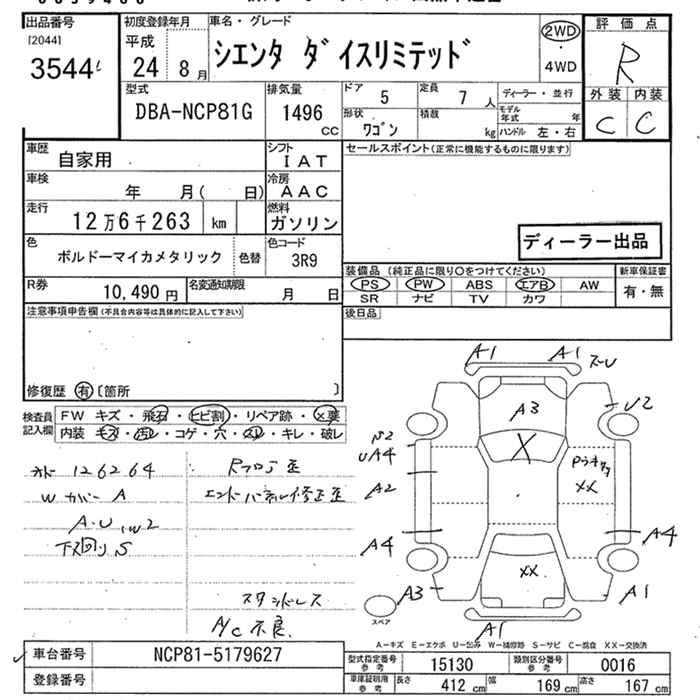 出品番号
[2044]
3544
初度登録年月
平成
24 8月
車名・グレード
シエンタ ダイスリミテッド
2WD
・
4WD
評価点
R
外装 内装
C C
型式
DBA-NCP81G
排気量
1496
CC
ドア
5
定員
7 人
形状
ワゴン
積載
kg
ディーラー・並行
モデル年式 年
ハンドル 左・右
車歴
自家用
シフト
IAT
車検
年 月( 日)
冷房
AAC
走行
12万6千263 km
燃料
ガソリン
色
ボルドーマイカメタリック
色替
色コード
3R9
R券
10,490 円
名変通知期限
月 日
セールスポイント(正常に機能するものに限ります)
ディーラー出品
装備品(純正品に限り○をつけてください)
PS PW ABS エアB AW
SR ナビ TV カワ
新車保証書
有・無
後日品
注意事項申告欄(不具合内容等は具体的に記入して下さい)
修復歴 有 [箇所 ]
検査員
記入欄
FW キズ・飛石・ヒビ割・リペア跡・×要
内装 キズ・汚レ・コゲ・穴・スレ・キレ・破レ
126264
Wカバー A
A・U,W2
下回り S
Rフロア歪
エンドパネル修正歪
スタッドレス
A/C 不良
A1 A1
A3
X
U2
UA4
A2
XX
A4
A4
XX
A3
A1
A1
スペア
A−キズ E−エクボ U−凹み W−補修跡 S−サビ C−腐食 XX−交換済
車台番号
NCP81-5179627
登録番号
型式指定番号
参考
15130
類別区分番号
参考
0016
車庫証明用
参考
長さ
412 cm
幅
169 cm
高さ
167 cm